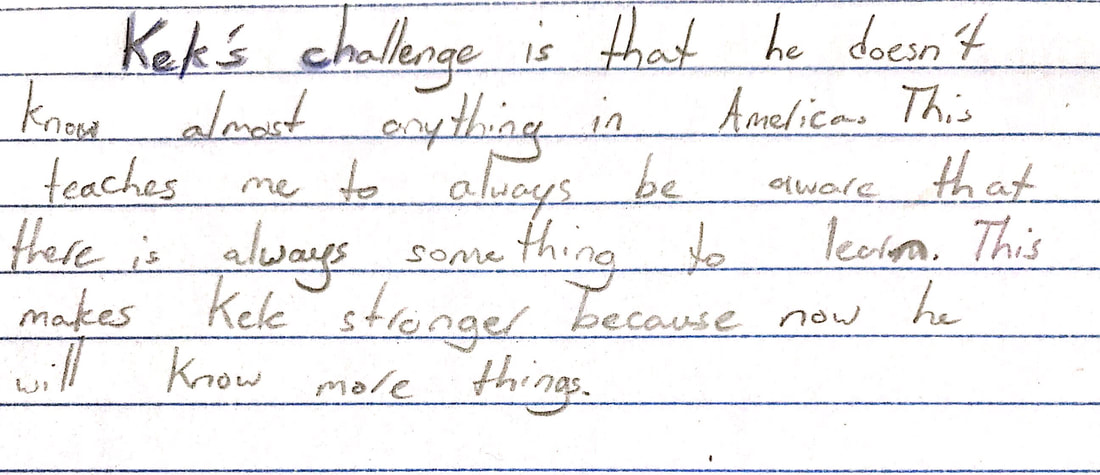 Kek's challenge is that he doesn't
know almost anything in America. This
teaches me to always be aware that
there is always something to learn. This
makes Kek stronger because now he
will know more things.